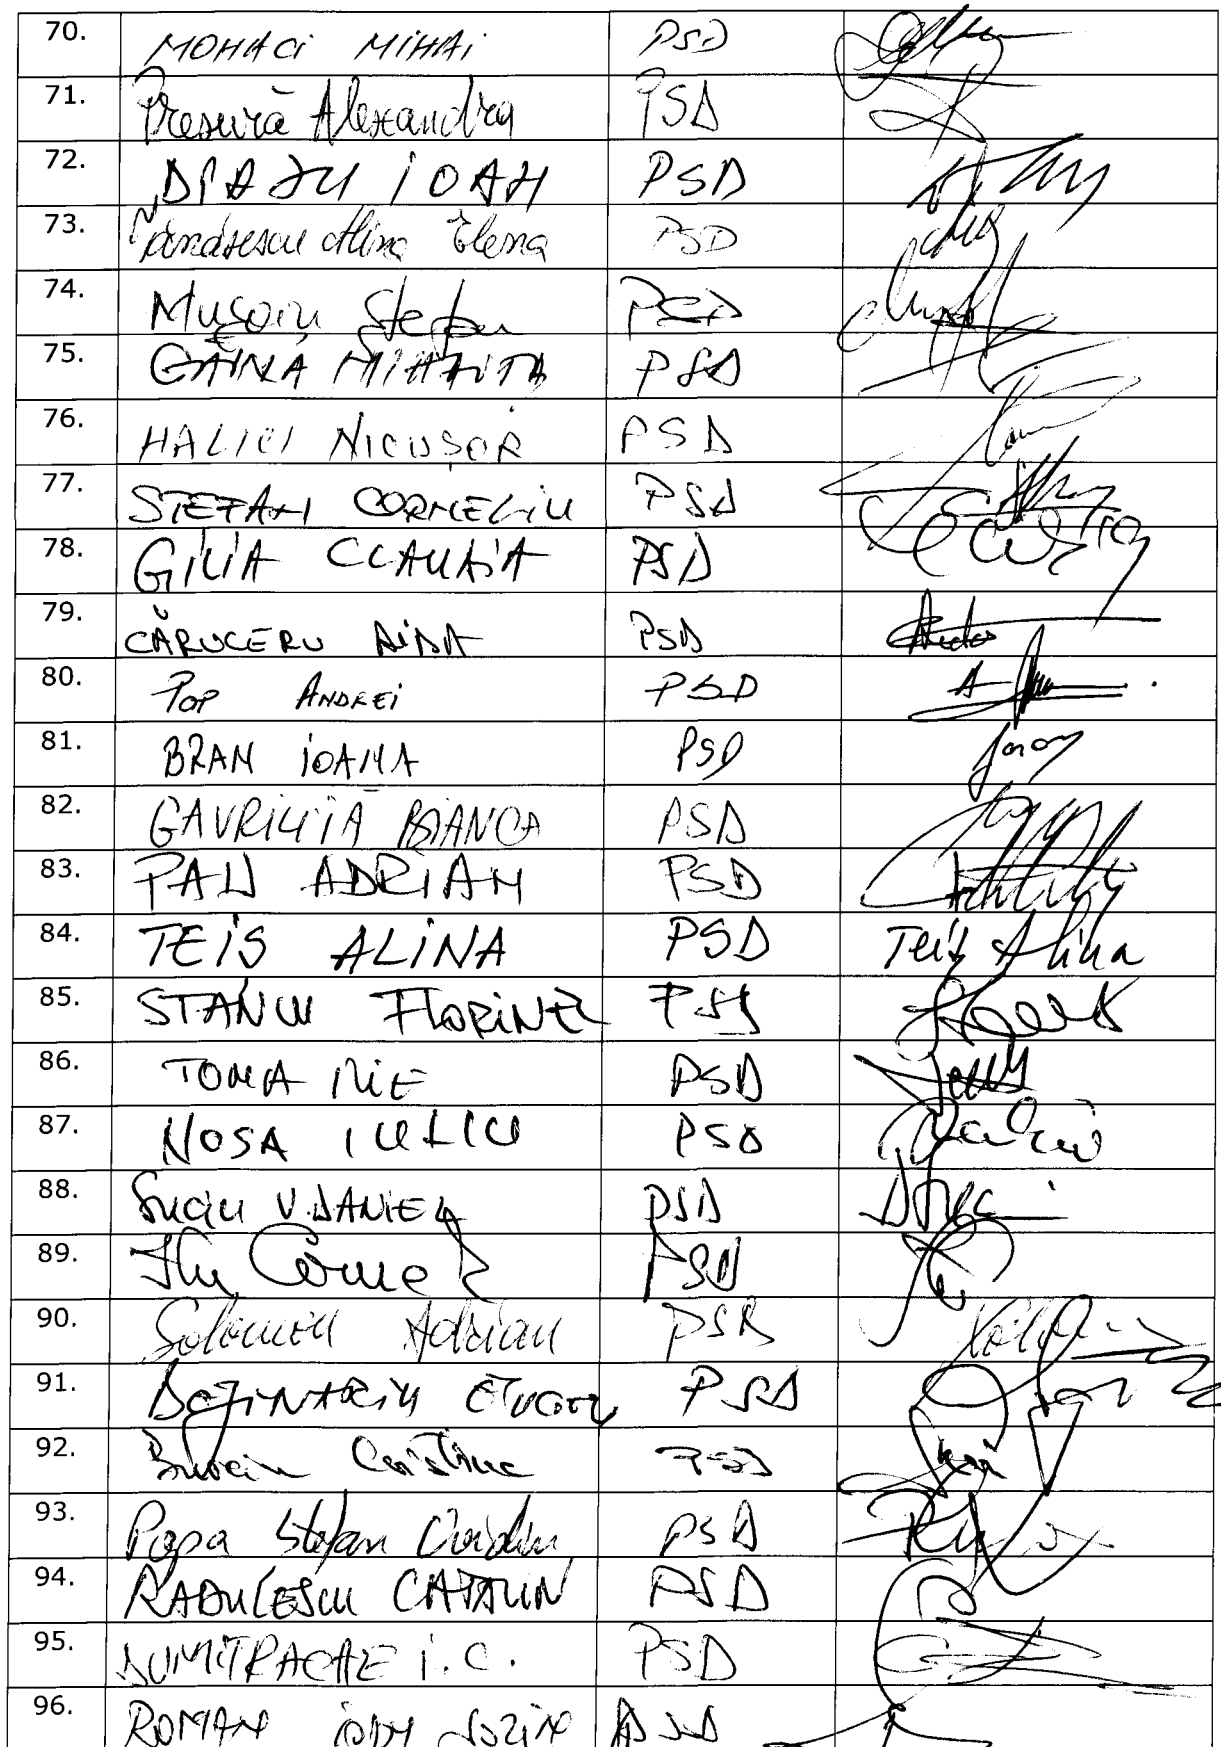 70. MOHACI MIHAI PSD
71. Presură Alexandra PSD
72. DIACU IOAN PSD
73. Tănăsescu Alina Elena PSD
74. Mușoiu Ștefan PSD
75. GĂINĂ MIHĂIȚĂ PSD
76. HALICI NICUȘOR PSD
77. STEFAN CORNELIU PSD
78. GILIA CLAUDIA PSD
79. CĂRUCERU AIDA PSD
80. POP ANDREI PSD
81. BRAN IOANA PSD
82. GAVRILIȚĂ BIANCA PSD
83. PAU ADRIAN PSD
84. TEIS ALINA PSD Teis Alina
85. STANCU FLORINEL PSD
86. TOMA ILIE PSD
87. NOSA IULIU PSD
88. Suciu V. DANIEL PSD
89. PSD
90. Solomon Adrian PSD
91. PSD
92. Cristina PSD
93. Popa Stefan Ovidiu PSD
94. RADULESCU CATALIN PSD
95. DUMITRACHE I.C. PSD
96. ROMAN SORIN PSD